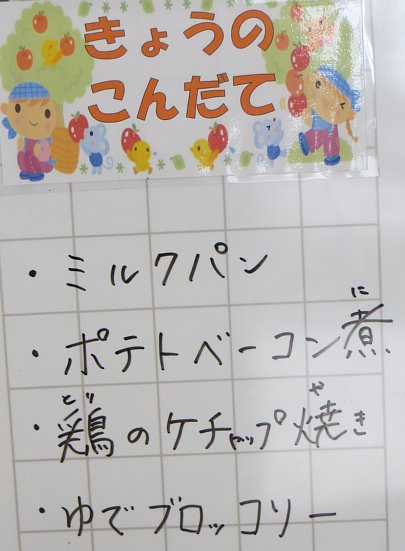 きょうの
こんだて
・ミルクパン
・ポテトベーコン煮
に
・鶏のケチャップ焼き
とり や
・ゆでブロッコリー